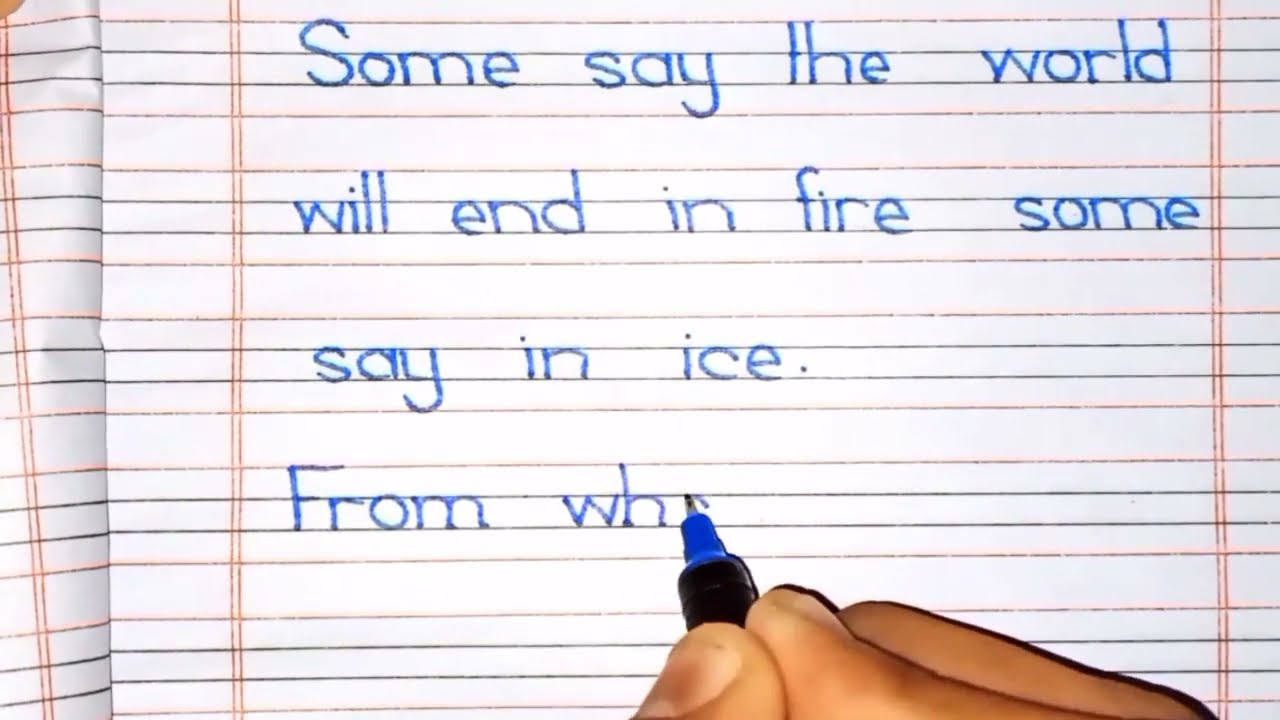 Some say the world
will end in fire some
say in ice.
From wh